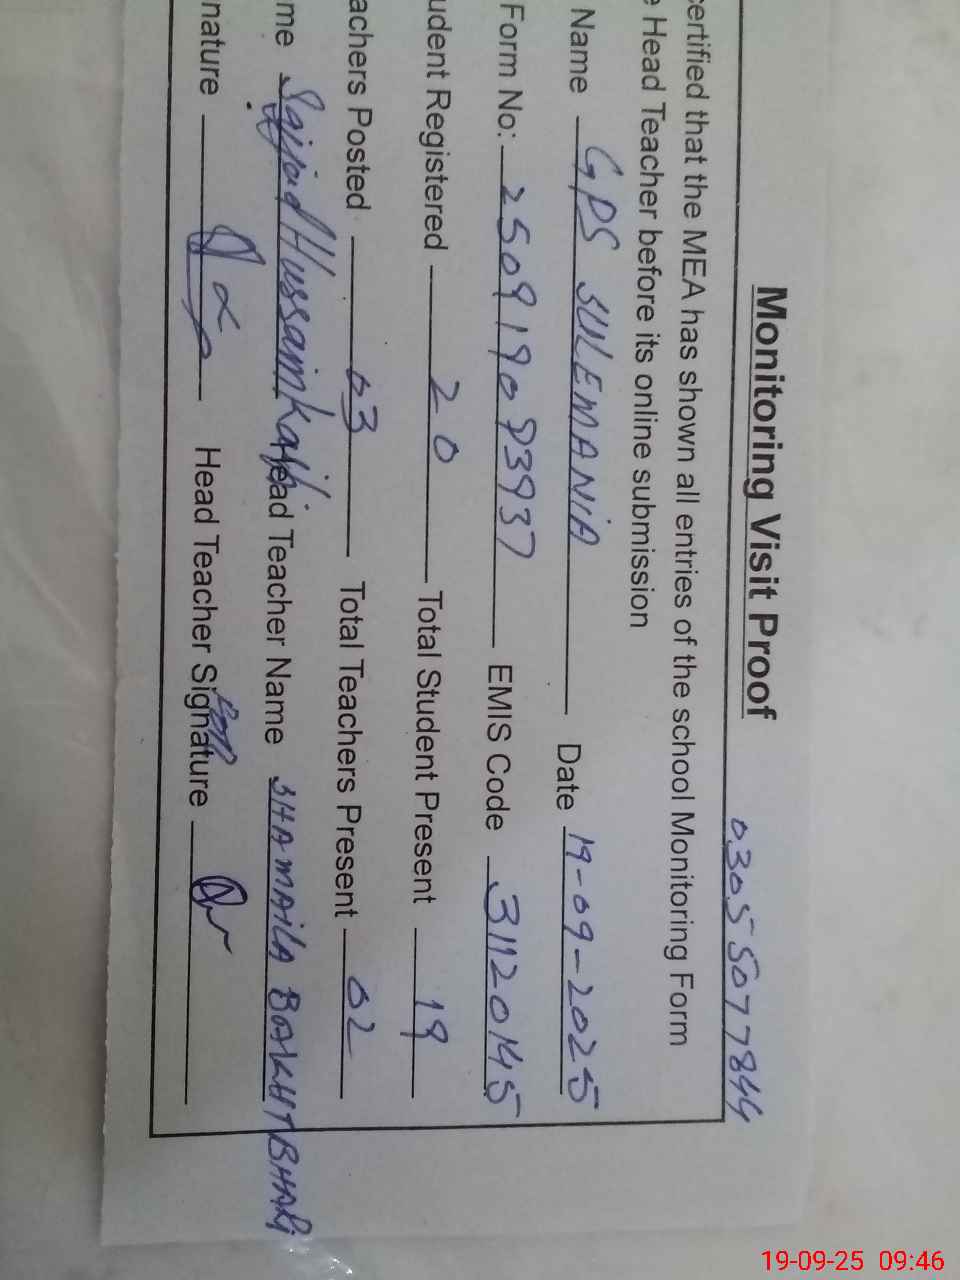 Monitoring Visit Proof
0305 5077844
ertified that the MEA has shown all entries of the school Monitoring Form
e Head Teacher before its online submission
Name GPS SULEMANIA Date 19-09-2025
Form No: 250919093937 EMIS Code 31120145
udent Registered 20 Total Student Present 19
achers Posted 03 Total Teachers Present 02
me Sajjad Hussain Head Teacher Name SHAMAILA BAKHT BHARI
nature Head Teacher Signature
19-09-25 09:46